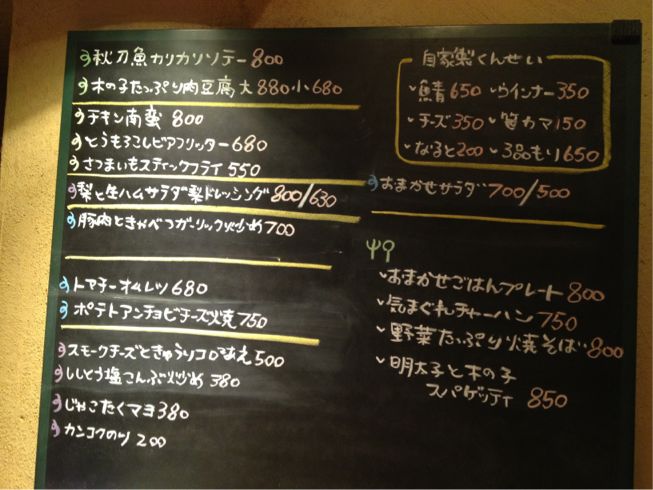 秋刀魚カリカリソテー 800
木の子たっぷり肉豆腐 大880.小680
チキン南蛮 800
とうもろこしビアフリッター 680
さつまいもスティックフライ 550
梨と生ハムサラダ梨ドレッシング 800/630
豚肉ときゃべつガーリック炒め 700
トマチーオムレツ 680
ポテトアンチョビチーズ焼 750
スモークチーズときゅうりコロコロ和え 500
ししとう塩こんぶ炒め 380
じゃこたくマヨ 380
カンコクのり 200
自家製くんせい
鯖 650 ウインナー 350
チーズ 350 笹カマ 150
なると 200 3品もり 650
おまかせサラダ 700/500
おまかせごはんプレート 800
気まぐれチャーハン 750
野菜たっぷり焼そば 800
明太子と木の子
スパゲッティ 850